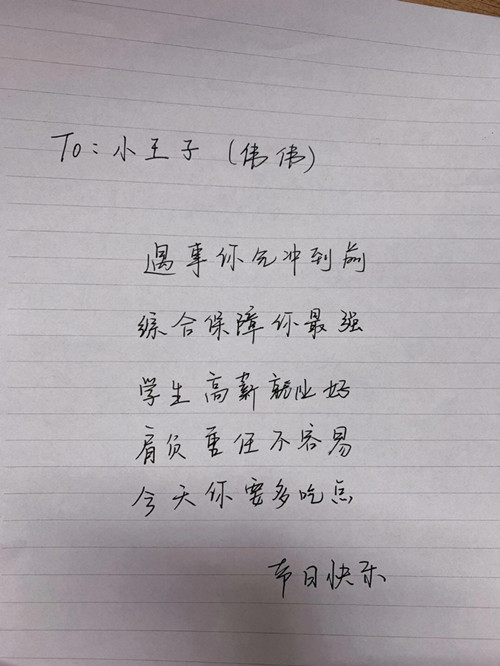 To：小王子（伟伟）
遇事你先冲到前
综合保障你最强
学生高薪就业好
肩负重任不容易
今天你要多吃点
节日快乐